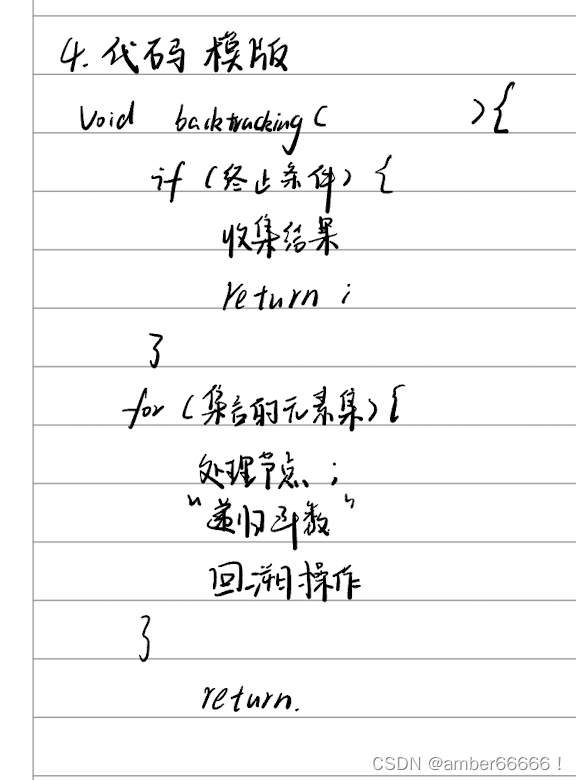 4. 代码 模版
void backtracking( ){
if (终止条件) {
收集结果
return ;
}
for (集合的元素集) {
处理节点 ;
"递归函数"
回溯操作
}
return.
CSDN @amber66666!